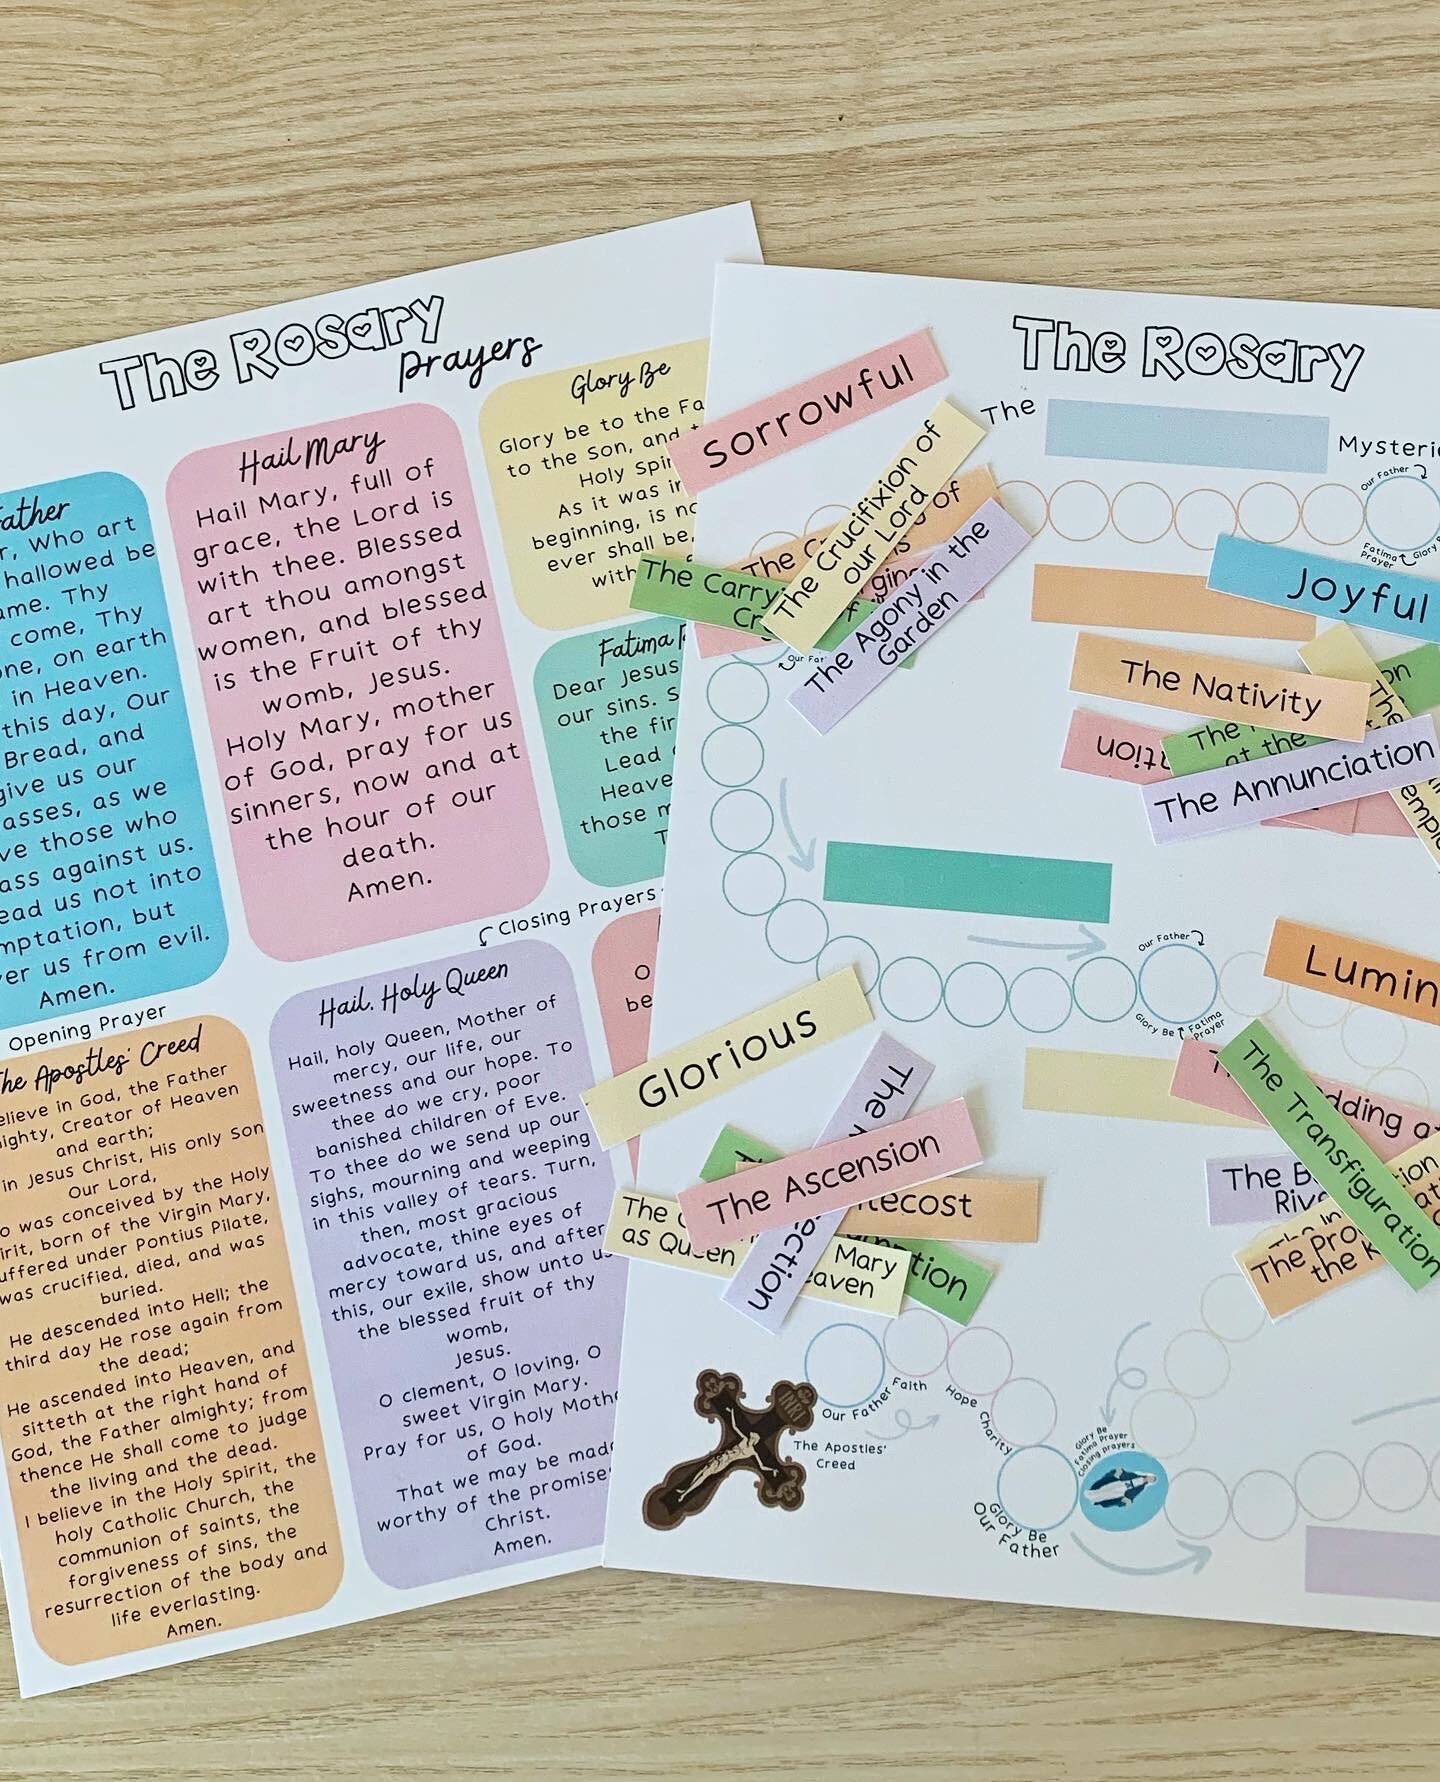 The Rosary
Prayers
Father
Who art
hallowed be
Thy
come, Thy
on earth
in Heaven.
this day, Our
Bread, and
give us our
as we
those who
against us.
us not into
but
us from evil.
Amen.
Hail Mary
Hail Mary, full of
grace, the Lord is
with thee. Blessed
art thou amongst
women, and blessed
is the Fruit of thy
womb, Jesus.
Holy Mary, mother
of God, pray for us
sinners, now and at
the hour of our
death.
Amen.
Glory Be
Glory be to the Fa
to the Son, and t
Holy Spir
As it was in
beginning, is no
ever shall be,
with
Fatima
Dear Jesus
our sins. S
the fir
Lead
Heave
those m
T
Closing Prayers
Opening Prayer
The Apostles' Creed
believe in God, the Father
Creator of Heaven
and earth;
in Jesus Christ, His only Son
Our Lord,
was conceived by the Holy
born of the Virgin Mary,
suffered under Pontius Pilate,
was crucified, died, and was
buried.
He descended into Hell; the
third day He rose again from
the dead;
He ascended into Heaven, and
sitteth at the right hand of
God, the Father almighty; from
thence He shall come to judge
the living and the dead.
I believe in the Holy Spirit, the
holy Catholic Church, the
communion of saints, the
forgiveness of sins, the
resurrection of the body and
life everlasting.
Amen.
Hail, Holy Queen
Hail, holy Queen, Mother of
mercy, our life, our
sweetness and our hope. To
thee do we cry, poor
banished children of Eve.
To thee do we send up our
sighs, mourning and weeping
in this valley of tears. Turn,
then, most gracious
advocate, thine eyes of
mercy toward us, and after
this, our exile, show unto us
the blessed fruit of thy
womb,
Jesus.
O clement, O loving, O
sweet Virgin Mary.
Pray for us, O holy Moth
of God.
That we may be made
worthy of the promise
Christ.
Amen.
O
be
The Rosary
The
Mysterie
Our Father
Fatima
Prayer
Glory
Sorrowful
The Crucifixion of
our Lord
of
The C
The Carry
The Agony in the
Garden
Joyful
The Nativity
The
at the
The Annunciation
Our Father
Glory Be
Fatima
Prayer
Lumin
Glorious
The Ascension
The
as Queen
tecost
Mary
eaven
tion
ection
The
dding at
The Transfiguration
The B
Riv
The Pro
the K
The Apostles'
Creed
Our Father
Faith
Hope
Charity
Glory Be
Our Father
Glory Be
Fatima Prayer
Closing prayers